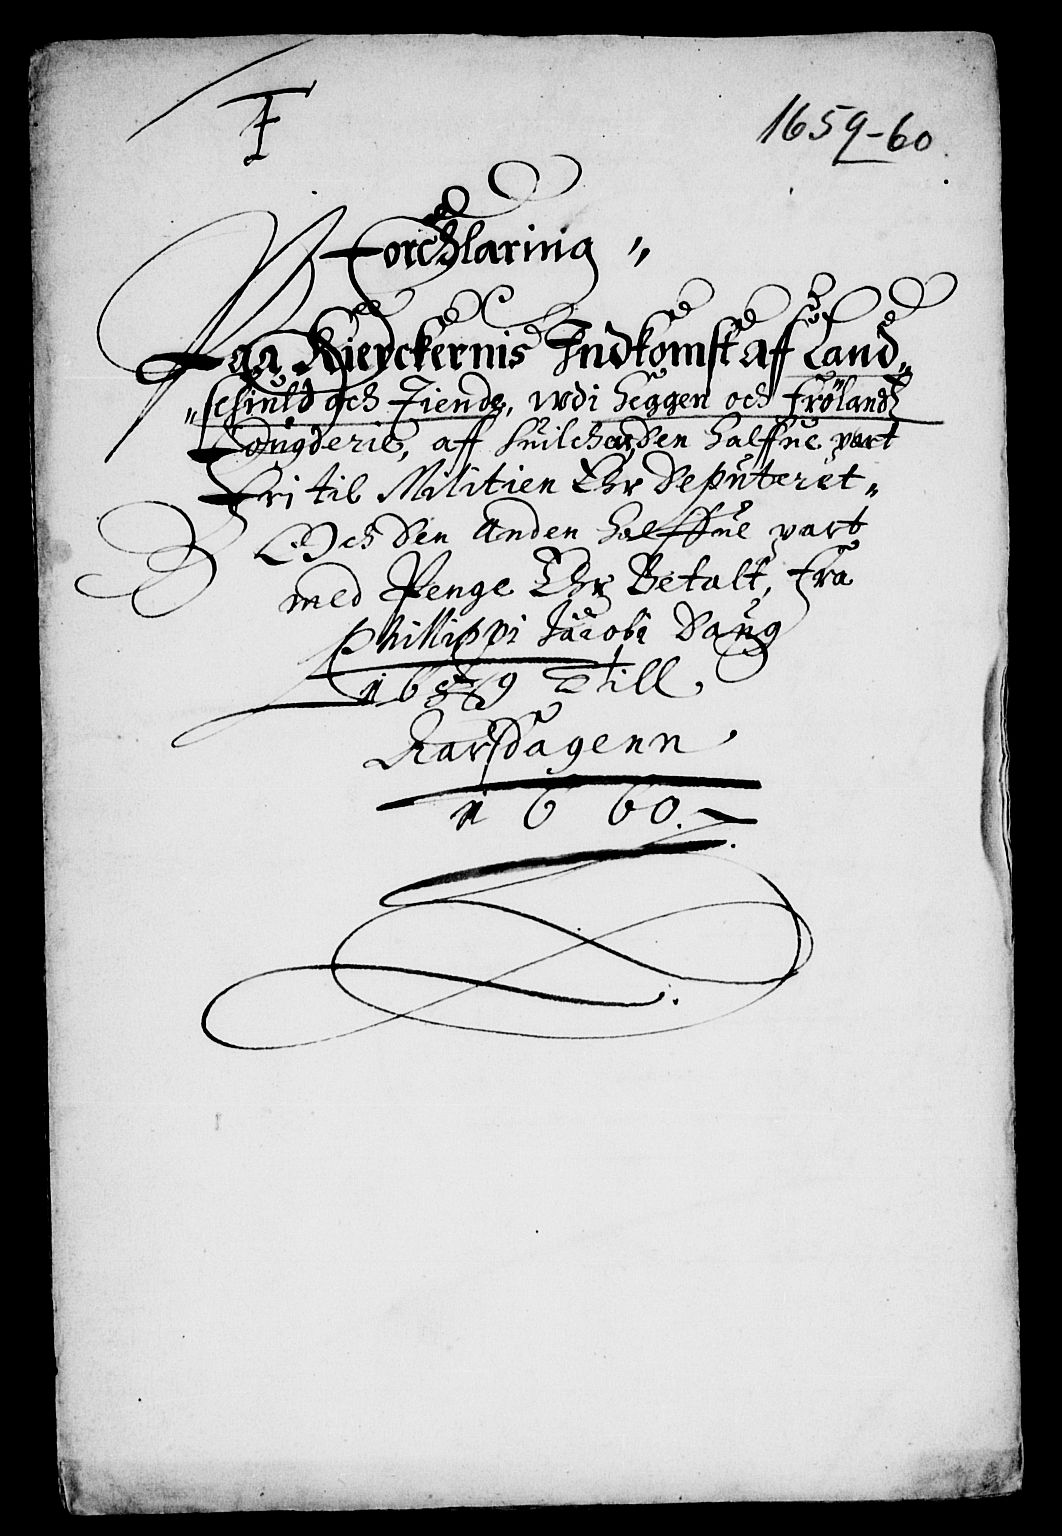 F
1659-60
Forchlaring
Paa Kierckernis Indkomst aff Land-
schyuld och Tiende, udi Heggen och Frölandz
Fougderie, aff huilche, den halffue part
Fri til Militien Ehr deputeret
Och den Anden halffue part
med Penge Ehr Betalt, fra
Phillippi Jacobi Daug
1659 Till
Aarsdagenn
1660.